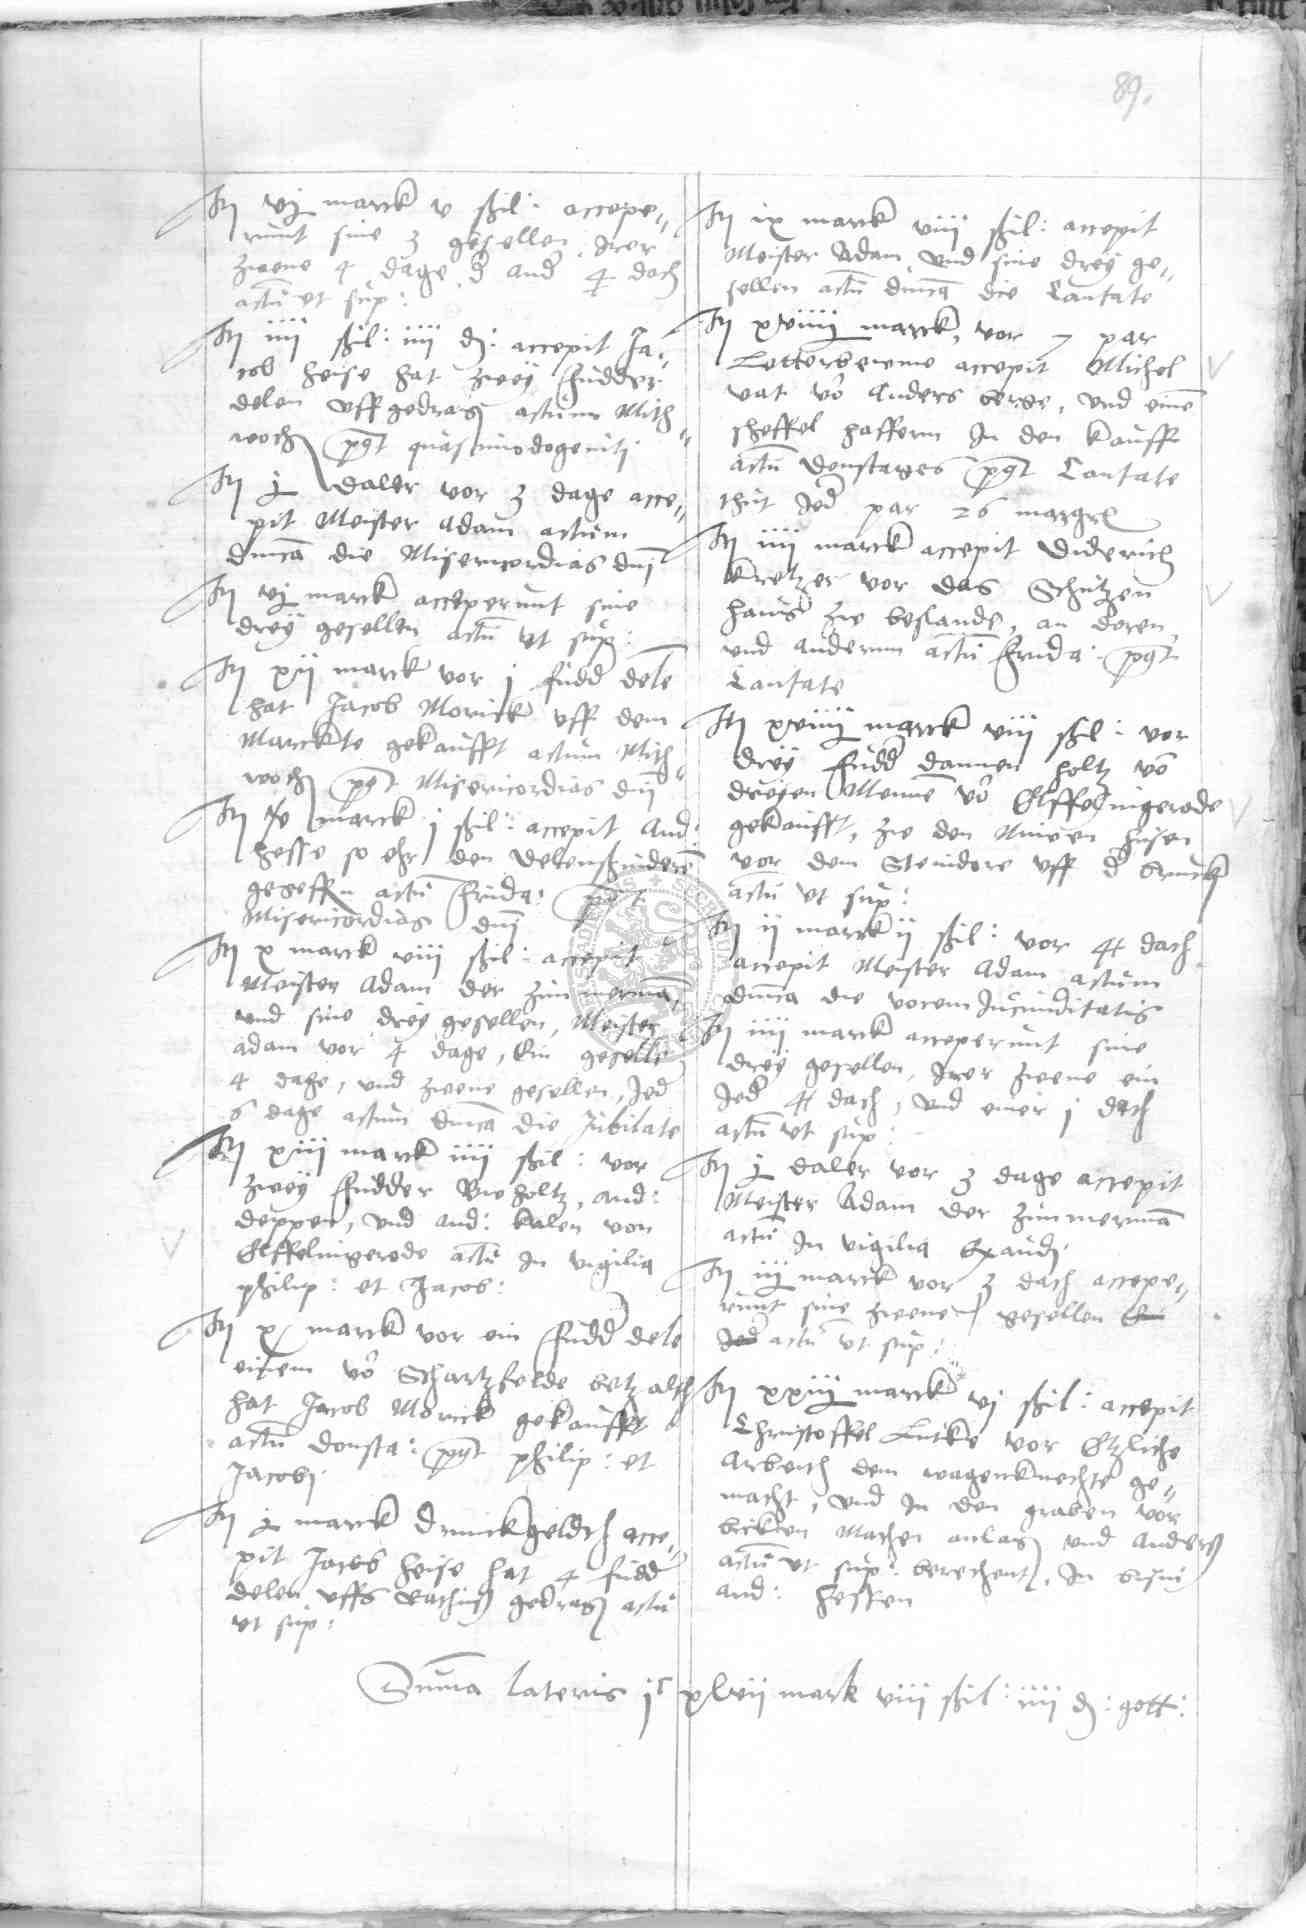 89.
It vj marck v ßil: accepe=
runt sine 3 gesellen irer
zweene 4 dage d and 4 dach
actu ut sup:
It iiii ßil: iiii d: accepit Ja=
cob heise hat zweÿ fudder
delen uffgedrag actum Mith=
woch pt quasimodogenitj
It j daler vor 3 dage acce=
pit Meister Adam actum
dmca die Misericordias dnj
It vj marck acceperunt sine
dreÿ gesellen actu ut sup:
It xij marck vor j fudd dele
hat Jacob Morick uff dem
Marckte gekaufft actum Mith=
woch pt Misericordias dnj
It marck j ßil: accepit And:
hesse so ehr den delenschnideren
gegeffn actu frida: pt
Misericordias dnj
It x marck viii ßil: accepit
Meister Adam der zimmerma,
und sine dreÿ gesellen, Meister
adam vor 4 dage, ein geselle
4 dage, und zweene gesellen, Jed
6 dage actum dmca die Jubilate
It xiii marck iiii ßil: vor
zweÿ fudder Buholtz, And:
deppen, und and: kalen von
Elffelingerode actu in vigilia
philip: et Jacob:
It x marck vor ein fudd dele
einem vo Schartzfelde betzalth
hat Jacob Morick gekaufft
actu donsta: pt philip: et
Jacobj
It j marck drinckgeldth acce=
pit Jacob heise hat 4 fudd
delen uffs Rathus gedrag actu
ut sup:
It ix marck viii ßil: accepit
Meister Adam und sine dreÿ ge=
sellen actu dmca die Cantate
It xviiij marck, vor 7 par
Letterbewme accepit Michel
vat vo Anders berge, und eine
scheffel hafferen In den kauff
actu donstages pt Cantate
thut Jed par 26 margrl
It iiii marck accepit Diderich
kretzer vor das Schutzen
hauß zu beslande, an doren
und anderem actu frida: pt
Cantate
It xviiij marck viii ßil: vor
dreÿ fudd dannen holtz vo
dreÿen Menne vo Elffelingerode
gekaufft, zu den Nuwen husen
vor dem Steindore uff d bruck
actu ut sup:
It ii marck ii ßil: vor 4 dach
accepit Meister Adam actum
dmca die vocem Jucunditatis
It iiii marck acceperunt sine
dreÿ gesellen, irer zweene ein
Jed 4 dach, und einer j dach
actu ut sup:
It j daler vor 3 dage accepit
Meister Adam der zimmerma
actu In vigilia Exaudj
It iij marck vor 3 dach accepe=
runt sine zweene gesellen
actu ut sup:
It xxiij marck vj ßil: accepit
Christoffel Lutke vor Etzliche
Arbeith dem wagenknechte ge=
macht, und In den graben vor
bicken Machen anlag und anders
actu ut sup: berechent, In bisin
And: hessen
Suma lateris jc xlvii mark viii ßil: iiii d: gott: